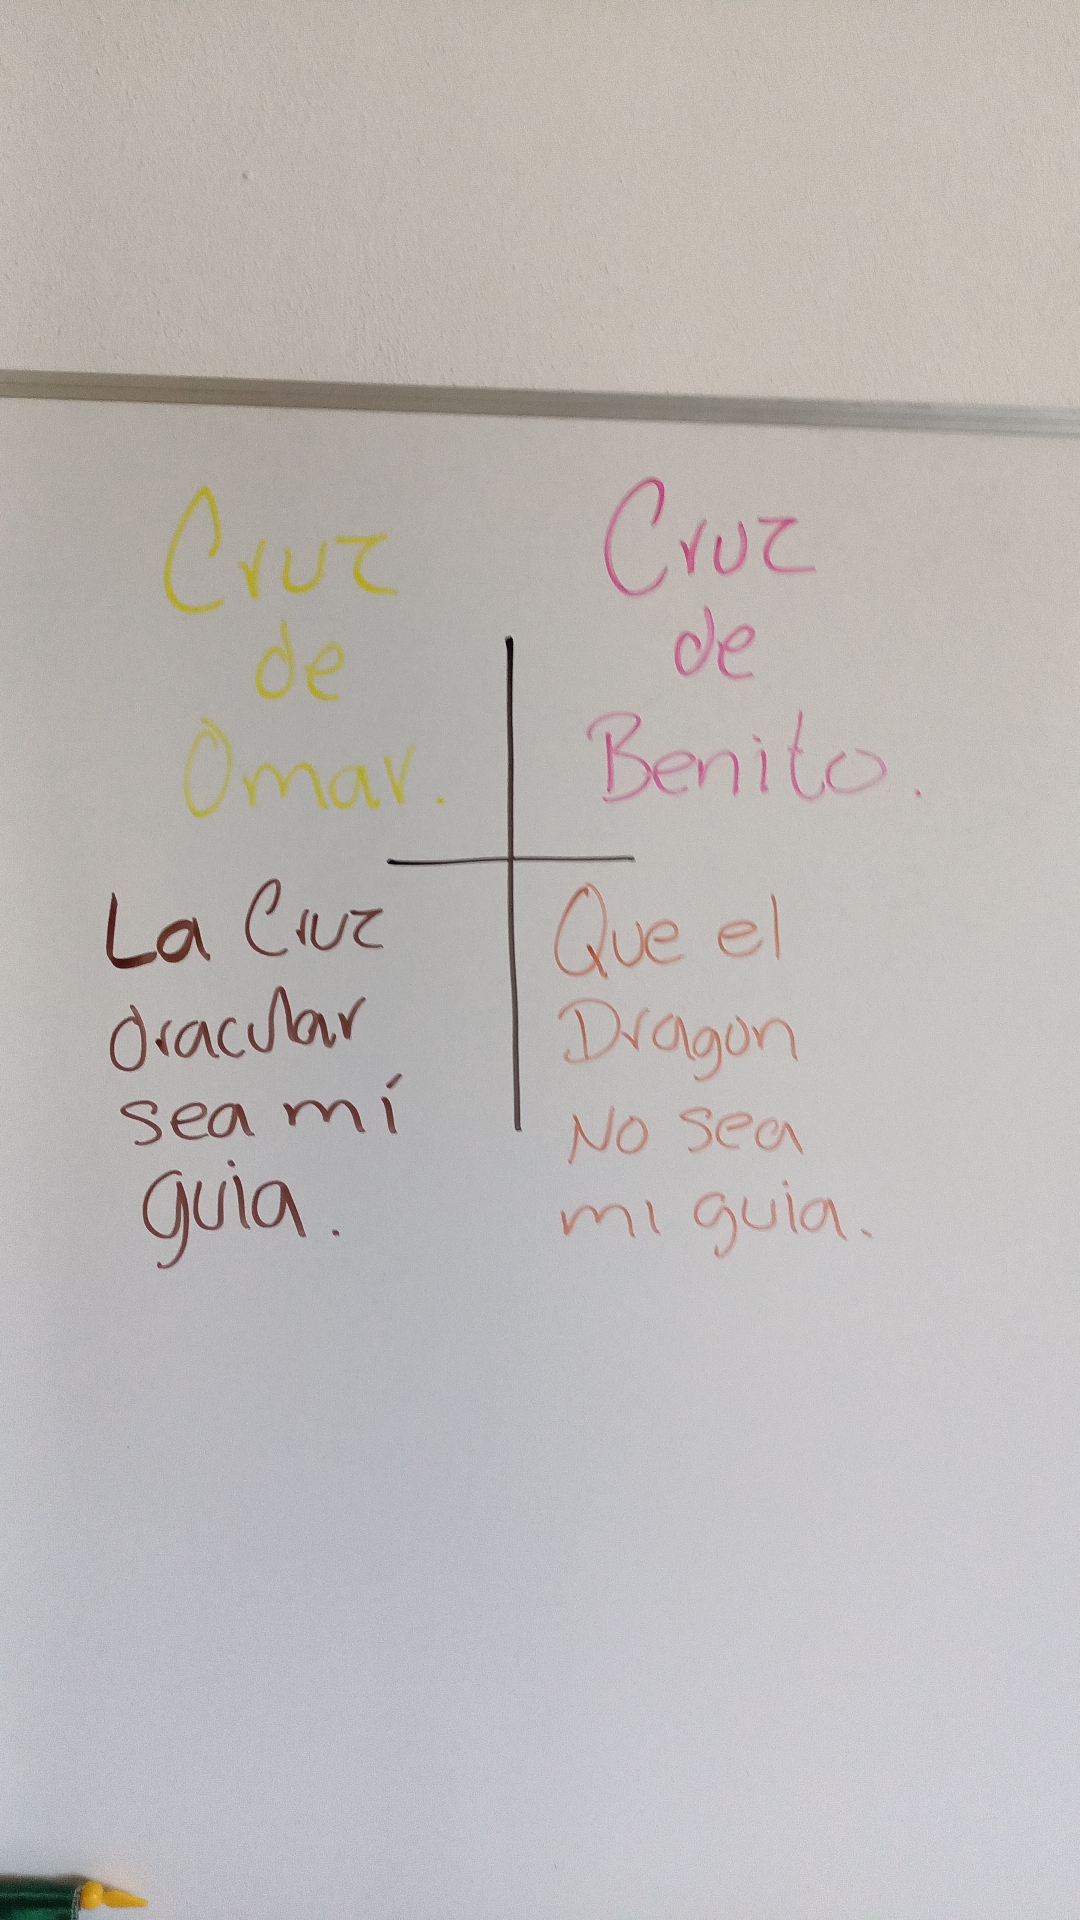 Cruz
de
Omar.
Cruz
de
Benito.
La Cruz
oracular
sea mí
guia.
Que el
Dragon
No sea
mi guia.